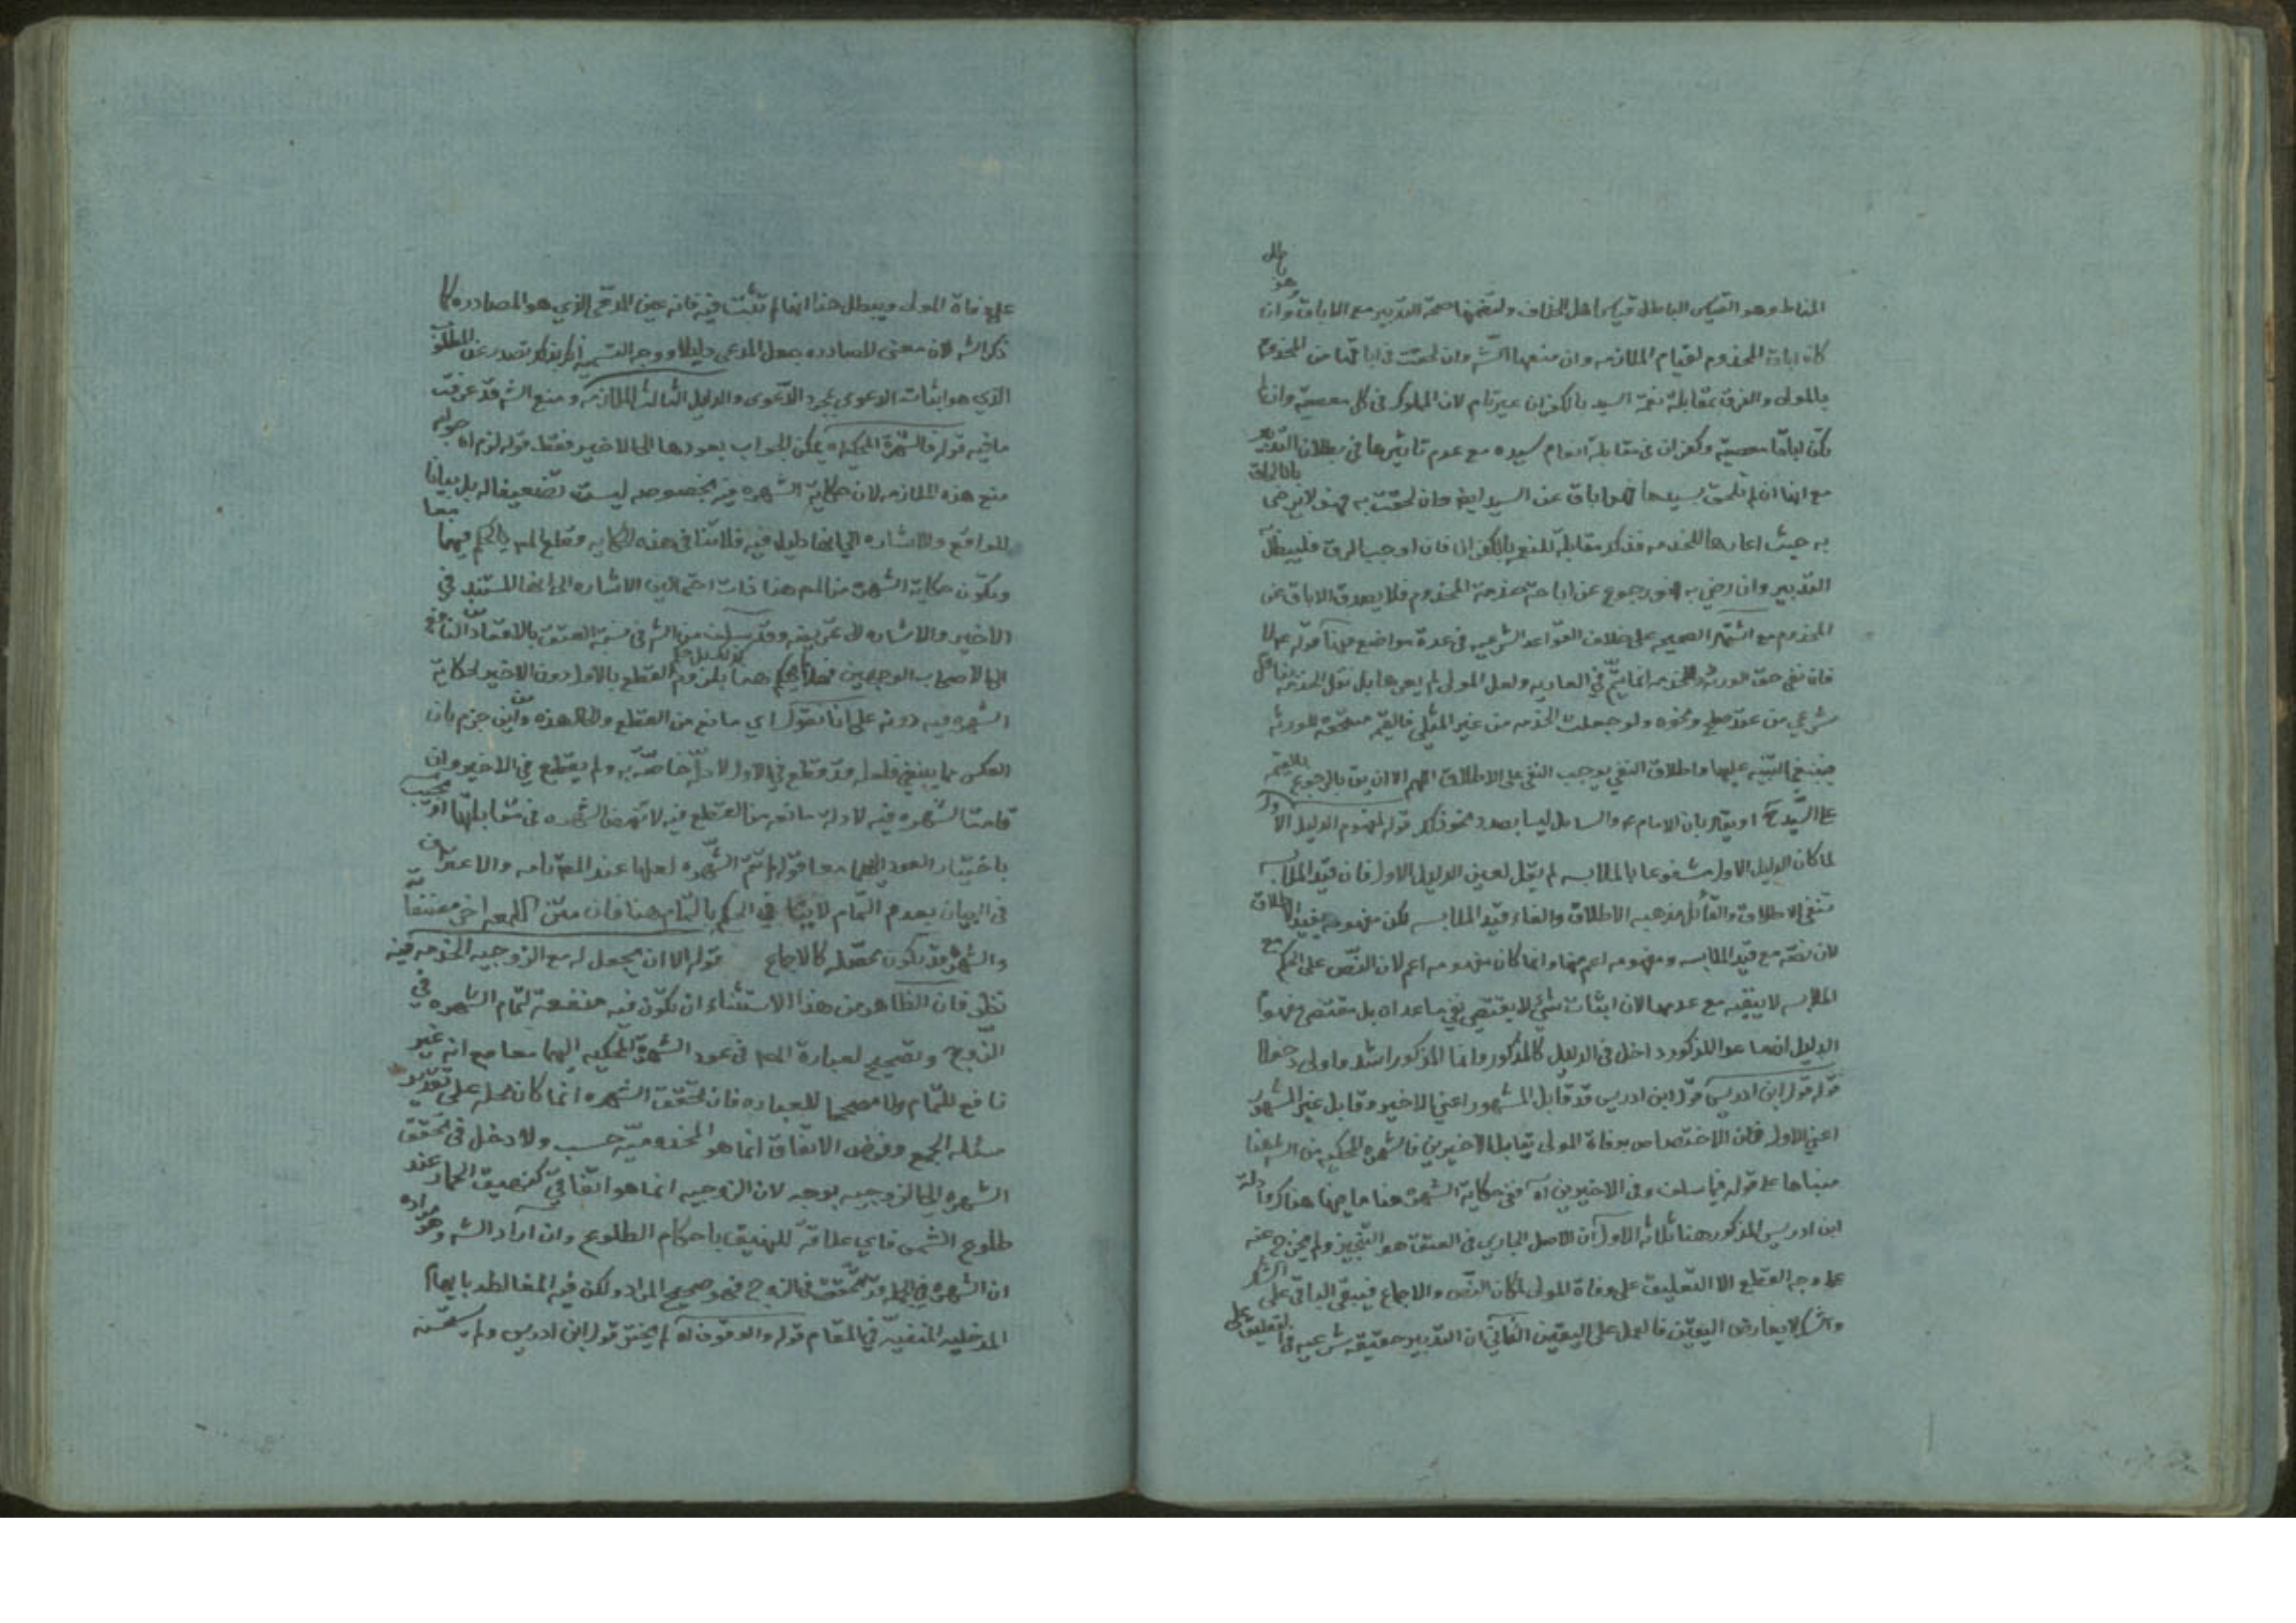 المناط وهو القياس الباطل قياس اهل الخلاف ولتضمنها صحة التدبير مع الاباق وان
كان اباق المخدوم لقيام الملازمه وان منعها الشه وان لحقت في اباقها من المخدوم
بالمولى والفرق بمقابلة نعمة السيد بالكفران غير تام لان المملوك في كل معصية وان لم
تكن اباقا معصية وكفران في مقابلة انعام سيده مع عدم تاثيرها في بطلان التدبير
مع انها ان لم تلحق بسيدها فهو اباق عن السيد ايضا وان لحقت به فهو لا يرضى
به حيث اعارها للخدمه فذكر مقابلة للنعم بالكفران فان اوجب الرق فليبطل
التدبير وان رضي به فهو رجوع عن اباحة خدمة المخدوم فلا يصدق الاباق عن
المخدوم مع اشتهار الصحيحه على خلاف القواعد الشرعيه في عدة مواضع قوله
فان نفي حق الورثه للخدمه انما يتم في العاريه ولعل المولى لم يعرها بل نقل الخدمه
شرعي من عقد صلح ونحوه ولو جعلت الخدمه من غير المثلي فالقيمه مستحقه للورثه
فينبغي التنبيه عليها واطلاق النفي يوجب النفي على الاطلاق اللهم الا ان يق بالرجوع
على السيد او يقال بان الامام ع والسائل ليسا بصدد نحو ذلك قوله لمفهوم الدليل الاول
لما كان الدليل الاول مشفوعا بالملابسه لم يقل لعين الدليل الاول فان قيد الملابسه
تنفي الاطلاق والقائل مذهبه الاطلاق والغاء قيد الملابسه لكن مفهومه يفيد الاطلاق
لان نصه مع قيد الملابسه ومفهومه اعم منها وانما كان مفهومه اعم لان النص على الحكم مع
الملابسه لا ينفيه مع عدمها لان اثبات شيء لا يقتضي نفي ما عداه بل مقتضى مفهوم
الدليل ان ما عدا المذكور داخل في الدليل كالمذكور وانما المذكور اشد واولى دخولا
قوله قول ابن ادريس قول ابن ادريس قد قابل المشهور اعني الاخير وقابل غير المشهور
اعني الاول فان الاختصاص بوفاة المولى يقابل الاخيرين فالشهره المحكيه من الشه هنا
مبناها على قوله فيما سلف وفي الاخيرين اه ففي حكاية الشهره هنا ما فيها هناك وادلة
ابن ادريس المذكور هنا ثلاثه الاول ان الاصل الجاري في العتق هو التنجيز ولم يخرج عنه
على وجه القطع الا التعليق على وفاة المولى لمكان النص والاجماع فيبقى الباقي على الشك
والشك لا يعارض اليقين فالعمل على اليقين الثاني ان التدبير حقيقة شرعيه في التعليق على
على وفاة المولى ويبطل هذا انها لم تثبت فيه فانه عين المدعى الذي هو المصادره كما
ذكر الشه لان معنى المصادره جعل المدعى دليلا ووجه التسميه بذلك تصدر عن المطلوب
الذي هو اثبات الدعوى بمجرد الدعوى والدليل الثالث الملازمه ومنع الشه قد عرفت
ما فيه قوله فالشهرة المحكيه اه يمكن الجواب بعودها الى الاخير فقط قوله لزم اه
منع هذه الملازمه لان حكاية الشهره فيه بخصوصه ليست تضعيفا له بل بيانا
للواقع وللاشاره الى انها دليل فيه فلا تنافي هذه الحكايه وقطع المص بالحكم فيهما معا
وتكون حكاية الشهره من المص هنا ذات احتمالين الاشاره الى انها المستند في
الاخير والاشاره الى تمريضه وقد سلف من الشه في نسبة العتق بالاقعاد
الى الاصحاب الوجهين هنا بلزوم القطع بالاول دون الاخير لحكاية
الشهره فيه دونه على انا نقول اي مانع من القطع والحال هذه واين جزم بان
العكس مما ينبغي فلعله قد قطع في الاول لادلة خاصة به ولم يقطع في الاخير وان
قامت الشهره فيه لادلة مانعه من القطع فيه لا تنهض الشهره في مقابلتها او نجيب
باختيار العود اليهما معا قوله لم تتم الشهره لعلها عند المص تامه والاعتراف
في البيان بعدم التمام لا ينافي الحكم بالتمام هنا فان متن اللمعه اخر مصنفاته
والشهره قد تكون محصله كالاجماع قوله الا ان يجعل له مع الزوجيه الخدمه فيه
نظر فان الظاهر من هذا الاستثناء ان تكون فيه منفعة لتمام الشهره في
الزوج وتصحيح لعبارة المص في عود الشهرة المحكيه اليهما معا مع انه غير
نافع للتمام ولا مصححا للعباره فان تحقق الشهره انما كان محله على تقدير
مسئلة الجمع وفرض الاتفاق انما هو المخدوميه حسب ولا دخل في تحقق
الشهره الى الزوجيه بوجه لان الزوجيه انما هو اتفاقي كنهيق الحمار عند
طلوع الشمس فاي علاقة للنهيق باحكام الطلوع وان اراد الشه وهو مراده
ان الشهره في الجمله قد تحقق في الزوج فهو صحيح المراد ولكن فيه المغالطه بايهام
المدخليه المنفيه في المقام قوله والوقوف اه لم يختر قول ابن ادريس ولم يستحسنه